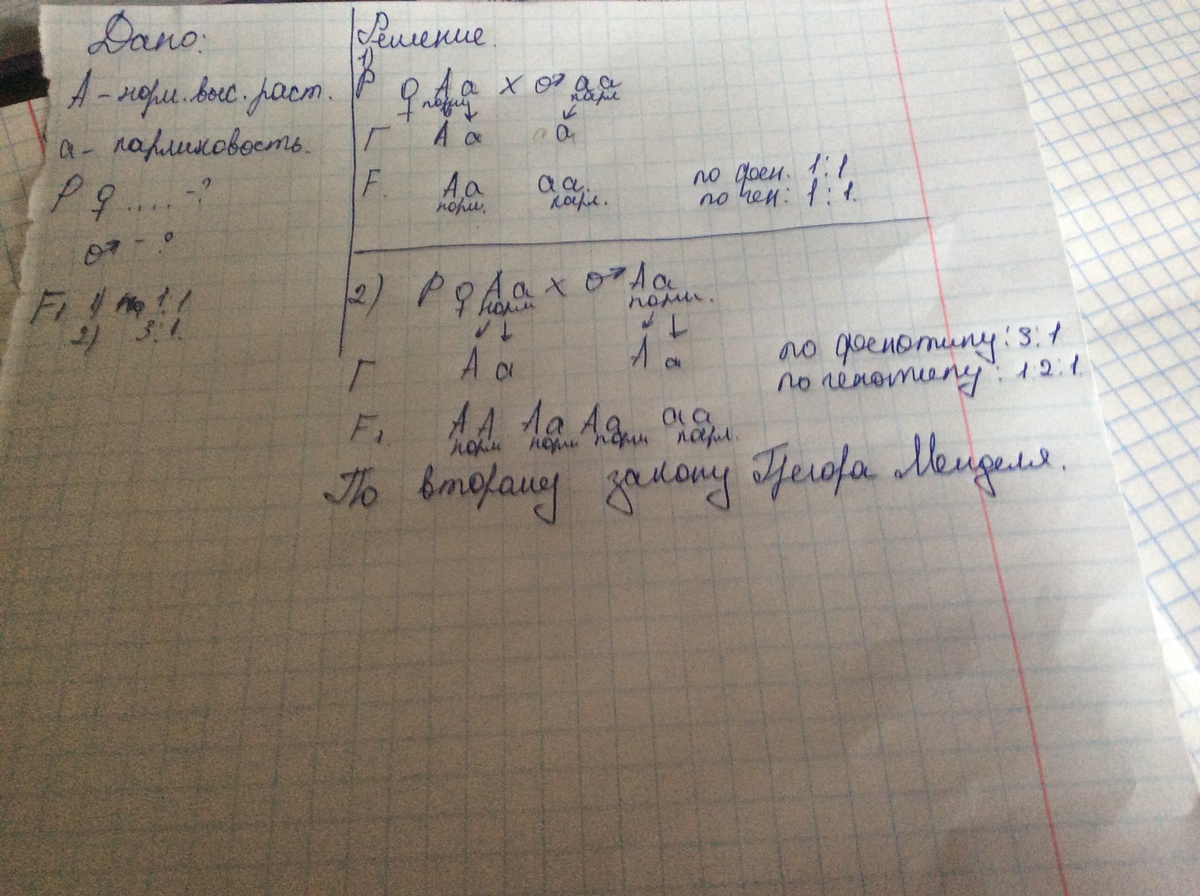 Дано:
А - норм. выс. раст.
а - карликовость.
Р ♀ ..... -?
♂ - ?
F₁ 1) по 1:1
2) 3:1.
Решение.
1)
Р ♀ Аа х ♂ аа
норм карл
Г А а а
F. Аа аа.
норм. карл.
по фен. 1:1
по ген: 1:1.
2) Р ♀ Аа х ♂ Аа
норм норм.
Г А а А а
по фенотипу: 3:1
по генотипу: 1:2:1.
F₁. АА Аа Аа аа
норм норм норм карл.
По второму закону Грегора Менделя.